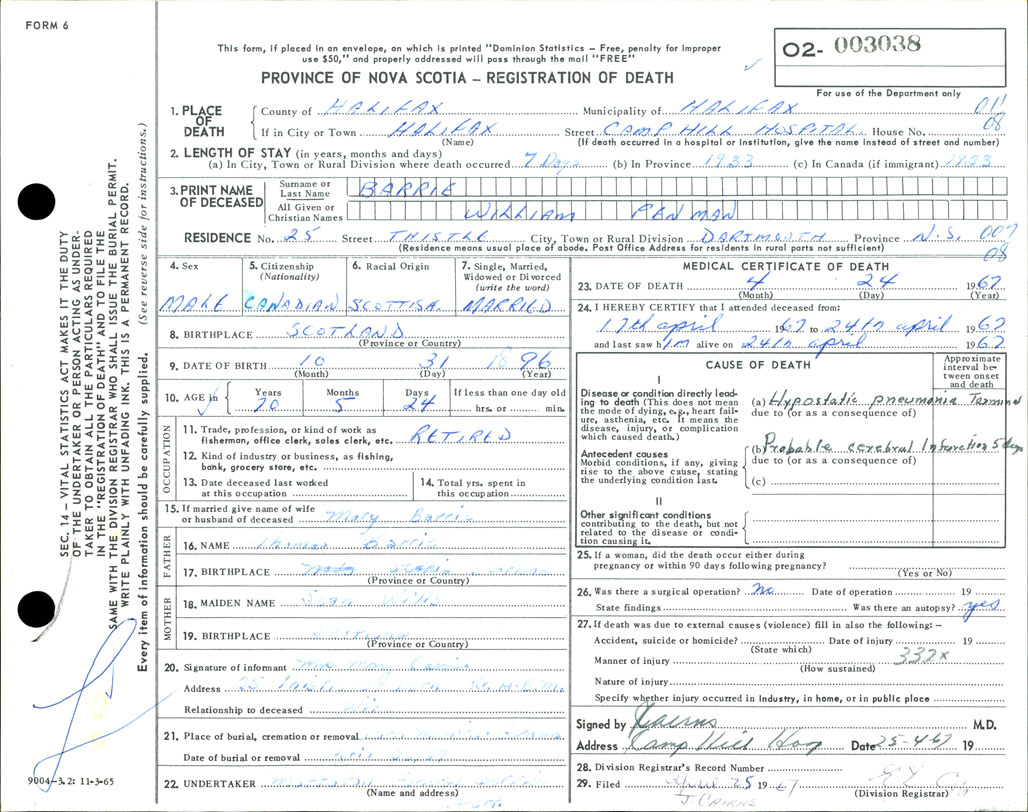 FORM 6
This form, if placed in an envelope, on which is printed "Dominion Statistics – Free, penalty for improper
use $50," and properly addressed will pass through the mail "FREE"
02- 003038
For use of the Department only
PROVINCE OF NOVA SCOTIA – REGISTRATION OF DEATH
1. PLACE OF DEATH
County of HALIFAX Municipality of HALIFAX 011
If in City or Town HALIFAX Street CAMP HILL HOSPITAL House No. 08
(Name) (If death occurred in a hospital or institution, give the name instead of street and number)
2. LENGTH OF STAY (in years, months and days)
(a) In City, Town or Rural Division where death occurred 7 Days (b) In Province 1933 (c) In Canada (if immigrant) 1923
3. PRINT NAME OF DECEASED
Surname or Last Name BARRIE
All Given or Christian Names WILLIAM PENMAN
RESIDENCE No. 25 Street THISTLE City, Town or Rural Division DARTMOUTH Province N.S. 007
(Residence means usual place of abode. Post Office Address for residents in rural parts not sufficient) 08
4. Sex MALE
5. Citizenship (Nationality) CANADIAN
6. Racial Origin SCOTTISH
7. Single, Married, Widowed or Divorced (write the word) MARRIED
8. BIRTHPLACE SCOTLAND
(Province or Country)
9. DATE OF BIRTH 10 31 1896
(Month) (Day) (Year)
10. AGE in Years 70 Months 5 Days 24 If less than one day old
hrs. or min.
OCCUPATION
11. Trade, profession, or kind of work as
fisherman, office clerk, sales clerk, etc. RETIRED
12. Kind of industry or business, as fishing,
bank, grocery store, etc.
13. Date deceased last worked
at this occupation
14. Total yrs. spent in
this occupation
15. If married give name of wife
or husband of deceased Mary Barrie
FATHER
16. NAME Thomas Barrie
17. BIRTHPLACE
(Province or Country)
MOTHER
18. MAIDEN NAME
19. BIRTHPLACE
(Province or Country)
20. Signature of informant Mrs Mary Barrie
Address 25
Relationship to deceased
21. Place of burial, cremation or removal
Date of burial or removal
22. UNDERTAKER
(Name and address)
MEDICAL CERTIFICATE OF DEATH
23. DATE OF DEATH 4 24 1967
(Month) (Day) (Year)
24. I HEREBY CERTIFY that I attended deceased from:
17th april 1967 to 24th april 1967
and last saw him alive on 24th april 1967
CAUSE OF DEATH
Approximate interval between onset and death
I
Disease or condition directly leading to death (This does not mean the mode of dying, e.g., heart failure, asthenia, etc. It means the disease, injury, or complication which caused death.)
(a) Hypostatic pneumonia Terminal
due to (or as a consequence of)
Antecedent causes
Morbid conditions, if any, giving rise to the above cause, stating the underlying condition last.
(b) Probable cerebral Infarction 5 days
due to (or as a consequence of)
(c)
II
Other significant conditions
contributing to the death, but not related to the disease or condition causing it.
25. If a woman, did the death occur either during
pregnancy or within 90 days following pregnancy?
(Yes or No)
26. Was there a surgical operation? No Date of operation 19
State findings Was there an autopsy? yes
27. If death was due to external causes (violence) fill in also the following: –
Accident, suicide or homicide? Date of injury 19
(State which)
Manner of injury 332x
(How sustained)
Nature of injury
Specify whether injury occurred in industry, in home, or in public place
Signed by Cairns M.D.
Address Camp Hill Hosp Date 25-4-67 19
28. Division Registrar's Record Number
29. Filed April 25 1967
J. CAIRNS (Division Registrar)
SEC. 14 – VITAL STATISTICS ACT MAKES IT THE DUTY
OF THE UNDERTAKER OR PERSON ACTING AS UNDER-
TAKER TO OBTAIN ALL THE PARTICULARS REQUIRED
IN THE "REGISTRATION OF DEATH" AND TO FILE THE
SAME WITH THE DIVISION REGISTRAR WHO SHALL ISSUE THE BURIAL PERMIT.
WRITE PLAINLY WITH UNFADING INK. THIS IS A PERMANENT RECORD.
Every item of information should be carefully supplied. (See reverse side for instructions.)
9004-3.2: 11-3-65